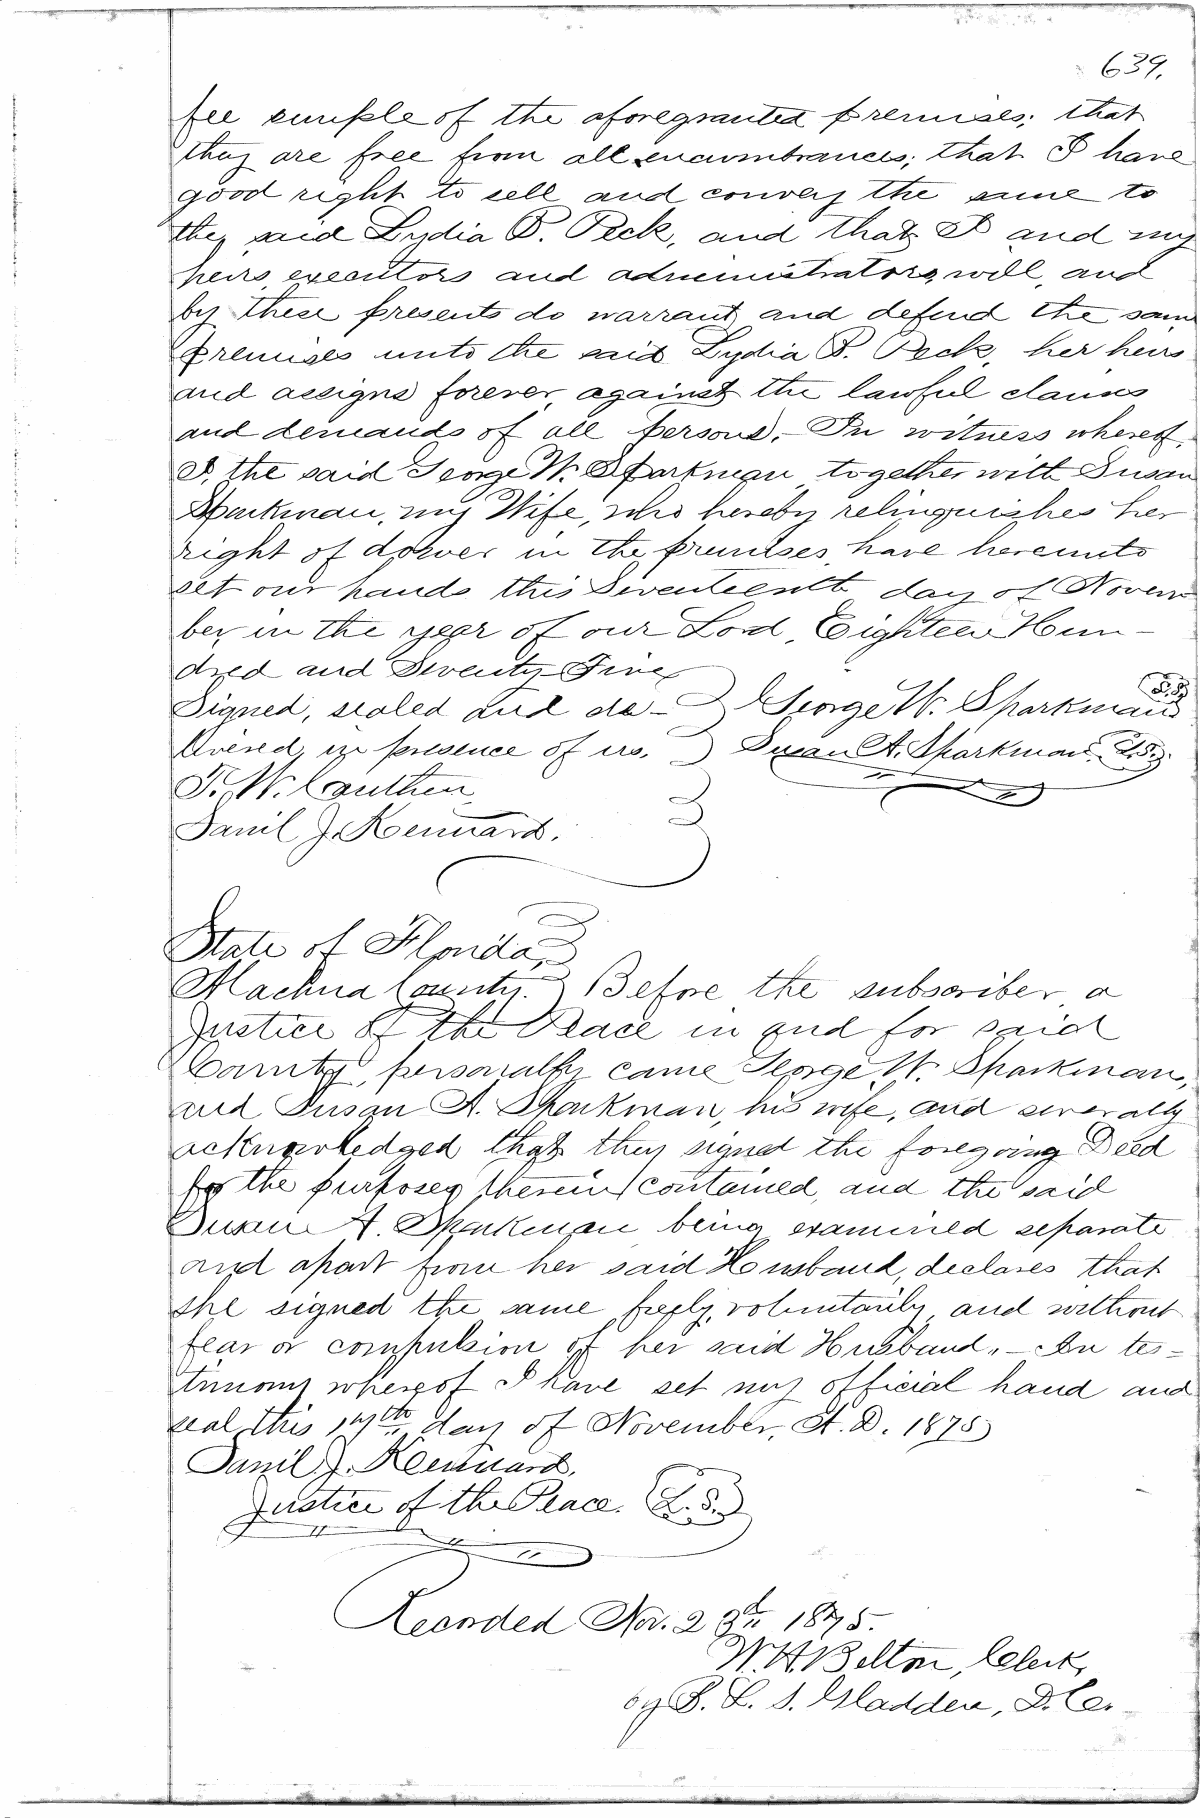 639.
fee simple of the aforegranted premises; that
they are free from all encumbrances; that I have
good right to sell and convey the same to
the said Lydia P. Peck, and that I and my
heirs, executors and administrators, will, and
by these presents do warrant and defend the same
premises unto the said Lydia P. Peck, her heirs
and assigns forever, against the lawful claims
and demands of all persons. - In witness whereof,
I, the said George W. Sparkman, together with Susan
Sparkman, my Wife, who hereby relinquishes her
right of dower in the premises, have hereunto
set our hands this Seventeenth day of Novem
ber, in the year of our Lord, Eighteen Hun-
dred and Seventy Five
Signed, sealed and de- George W. Sparkman L.S.
livered, in presence of us. Susan A. Sparkman. L.S.
T. W. Cauthen,
Sam'l J. Kennard.
State of Florida,
Alachua County. Before the subscriber a
Justice of the Peace in and for said
County, personally came George W. Sparkman,
and Susan A. Sparkman, his wife, and severally
acknowledged that they signed the foregoing Deed
for the purposes therein contained, and the said
Susan A. Sparkman being examined separate
and apart from her said Husband, declares that
she signed the same freely, voluntarily and without
fear or compulsion of her said Husband. - In tes-
timony whereof I have set my official hand and
seal this 17th day of November, A.D. 1875
Sam'l J. Kennard.
Justice of the Peace. L.S.
Recorded Nov. 23d 1875.
W. H. Belton, Clerk,
by S. L. Gladden, D.C.